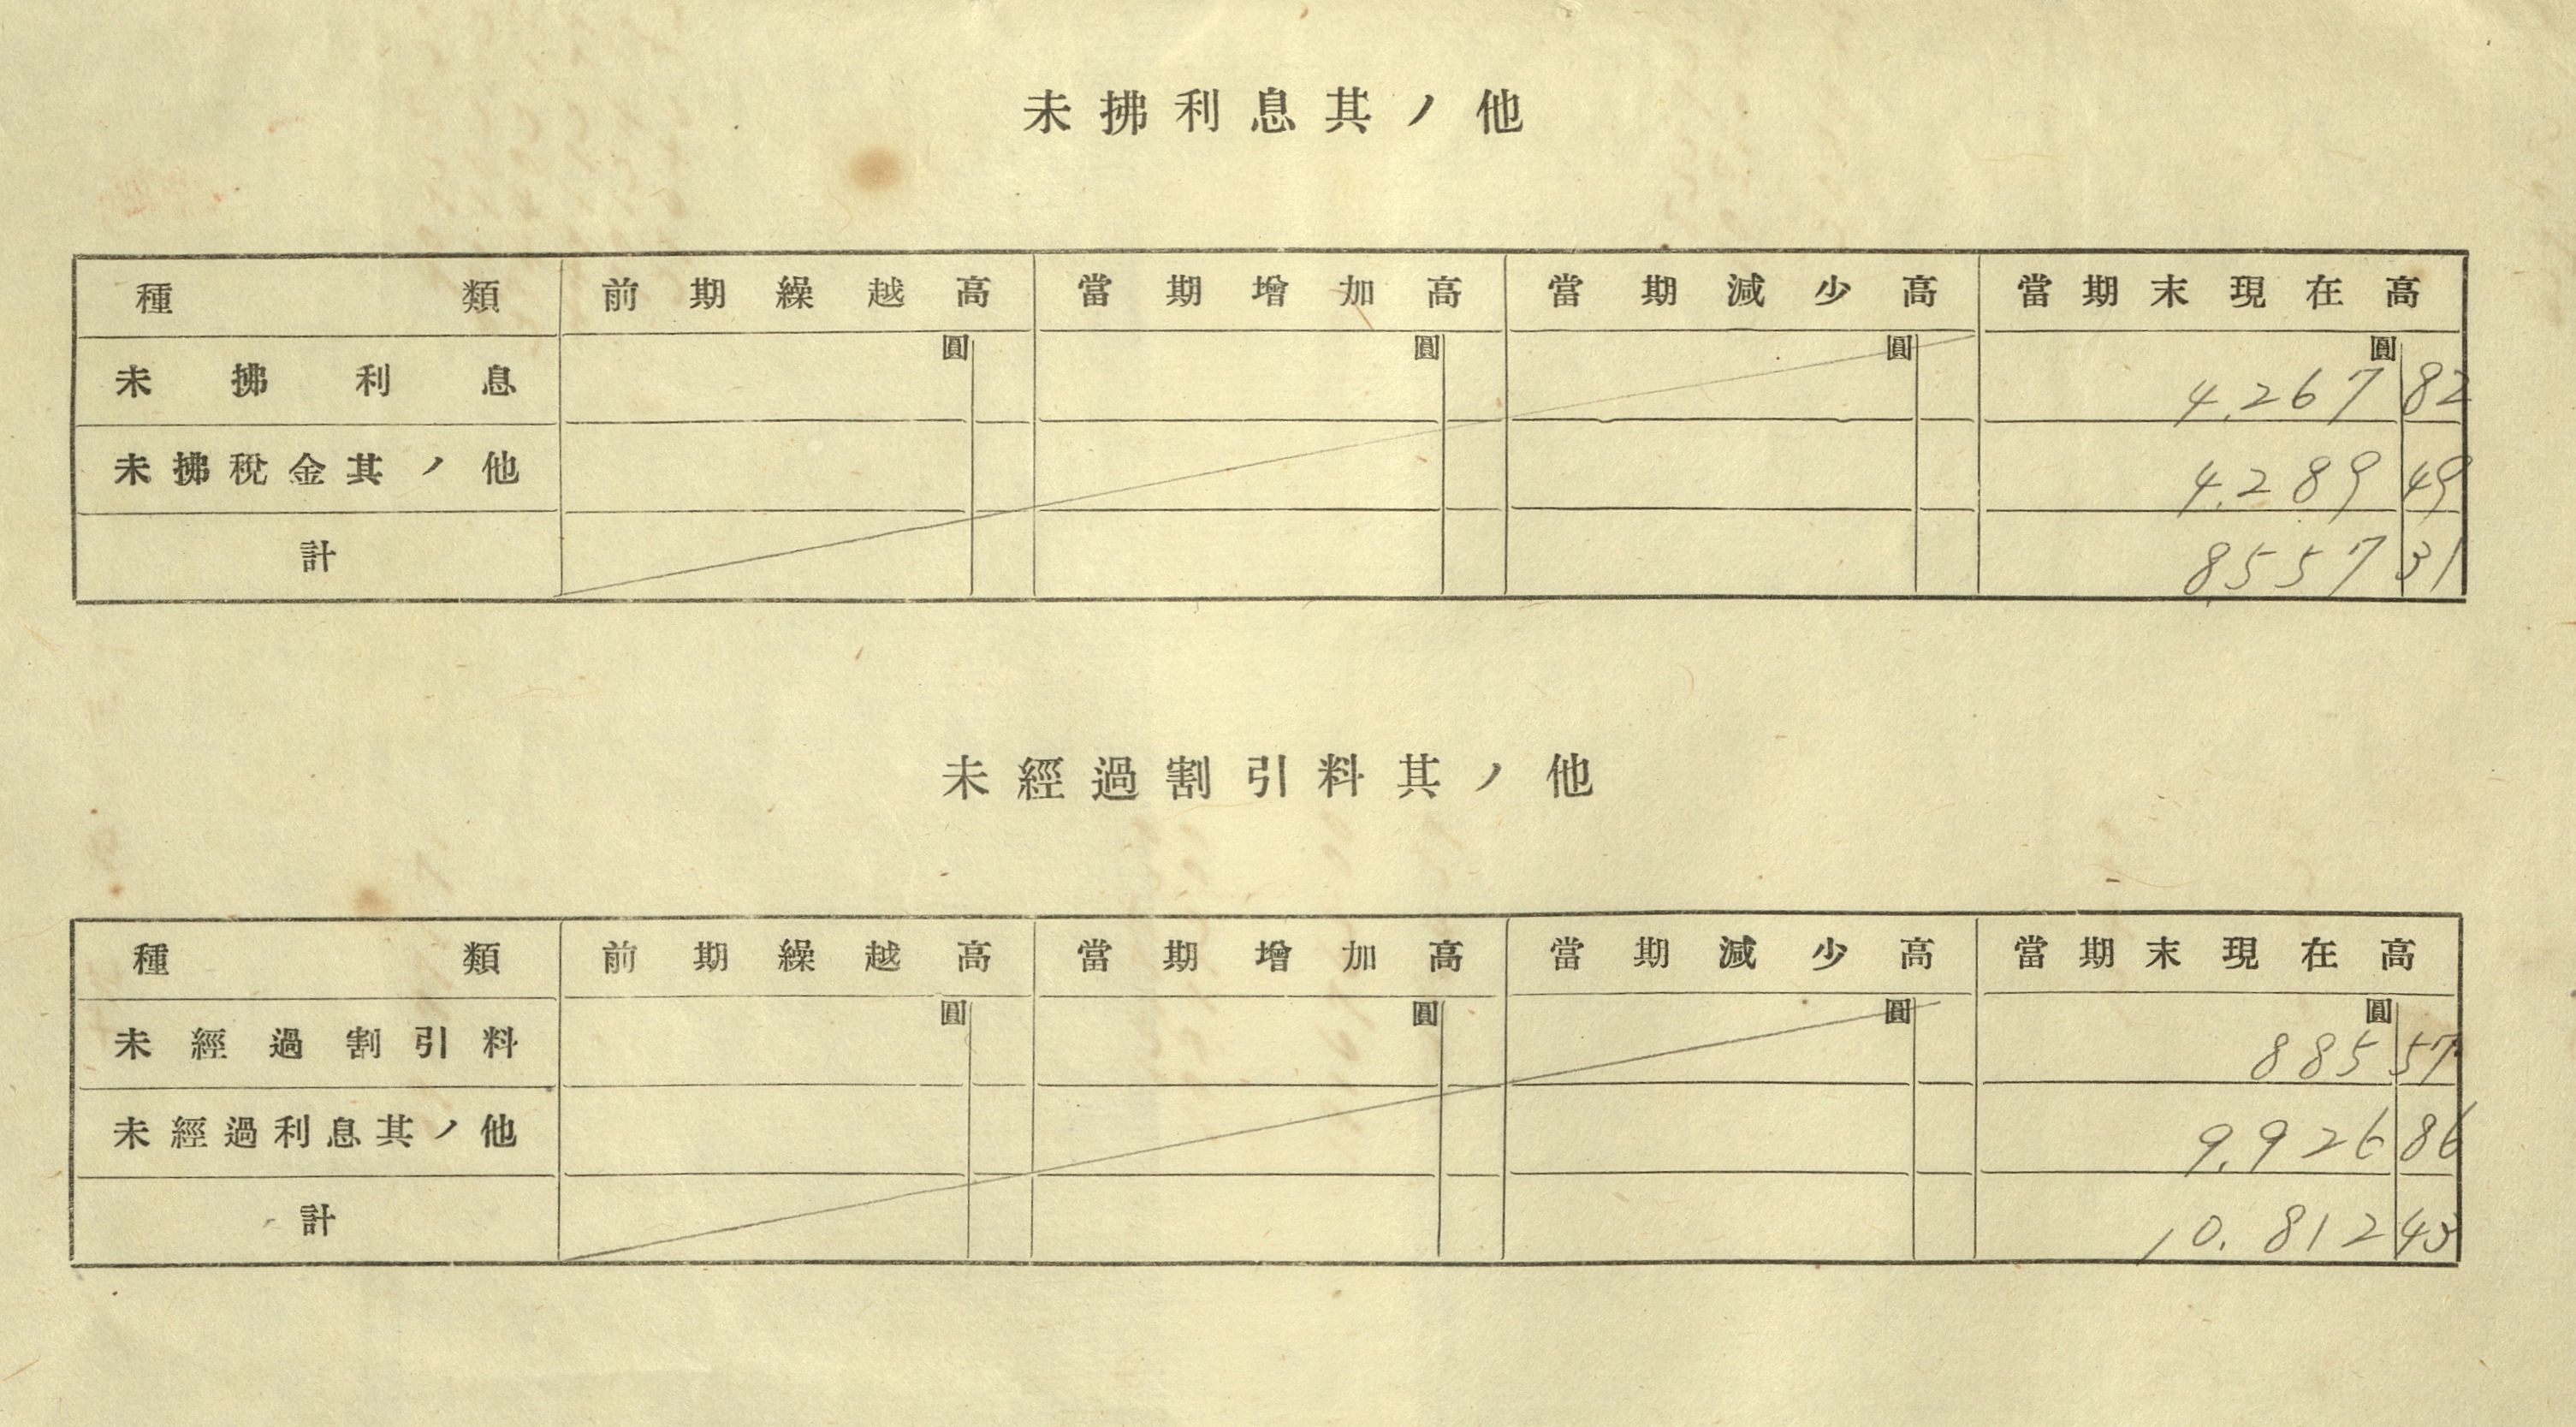 未拂利息其ノ他
種類 前期繰越高 當期增加高 當期減少高 當期末現在高
圓 圓 圓 圓
未拂利息 4.267 82
未拂稅金其ノ他 4.289 49
計 8.557 31
未經過割引料其ノ他
種類 前期繰越高 當期增加高 當期減少高 當期末現在高
圓 圓 圓 圓
未經過割引料 885 57
未經過利息其ノ他 9.926 86
計 10.812 43